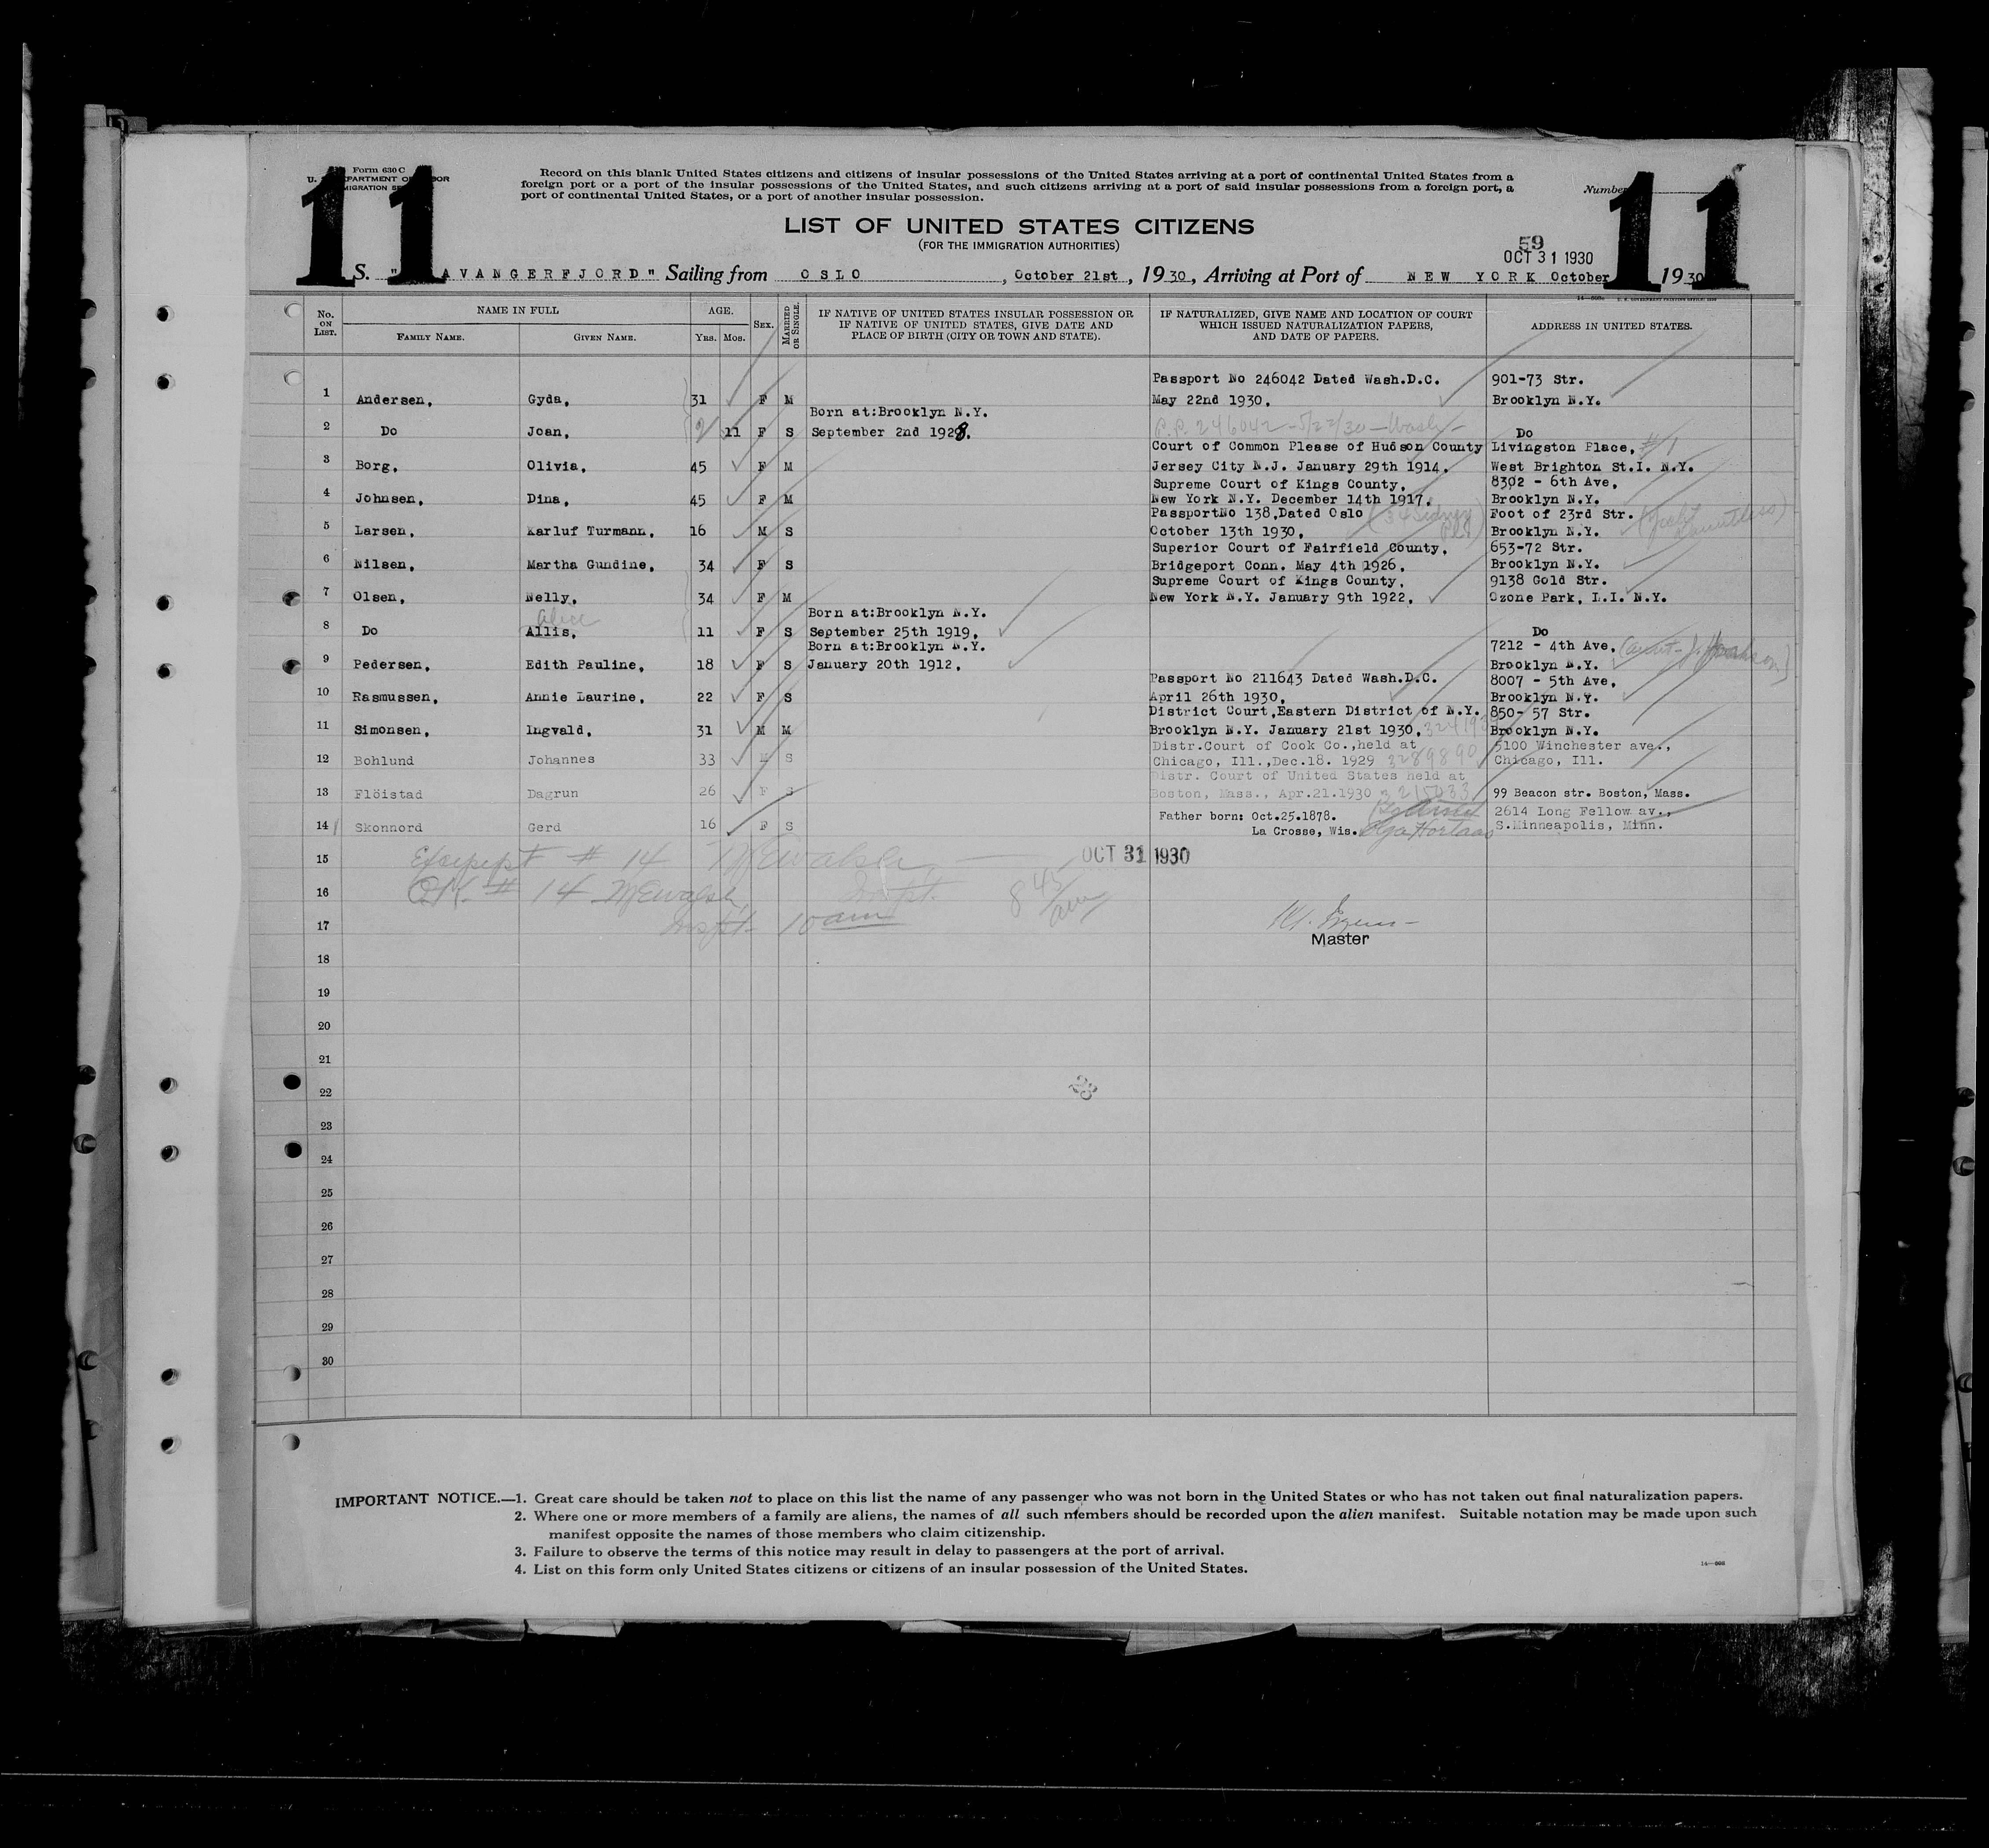 11
Form 630 C
U. S. DEPARTMENT OF LABOR
IMMIGRATION SERVICE
Record on this blank United States citizens and citizens of insular possessions of the United States arriving at a port of continental United States from a
foreign port or a port of the insular possessions of the United States, and such citizens arriving at a port of said insular possessions from a foreign port, a
port of continental United States, or a port of another insular possession.
Number
11
LIST OF UNITED STATES CITIZENS
(FOR THE IMMIGRATION AUTHORITIES)
59
OCT 31 1930
S. " AVANGERFJORD" Sailing from OSLO, October 21st, 1930, Arriving at Port of NEW YORK October 1930
No. ON LIST.
NAME IN FULL
FAMILY NAME.
GIVEN NAME.
AGE.
YRS. MOS.
SEX.
MARRIED OR SINGLE.
IF NATIVE OF UNITED STATES INSULAR POSSESSION OR
IF NATIVE OF UNITED STATES, GIVE DATE AND
PLACE OF BIRTH (CITY OR TOWN AND STATE).
IF NATURALIZED, GIVE NAME AND LOCATION OF COURT
WHICH ISSUED NATURALIZATION PAPERS,
AND DATE OF PAPERS.
ADDRESS IN UNITED STATES.
Passport No 246042 Dated Wash.D.C. 901-73 Str.
1 Andersen, Gyda, 31 F M May 22nd 1930. Brooklyn N.Y.
Born at:Brooklyn N.Y.
2 Do Joan, 2 11 F S September 2nd 1928. P.P. 246042 - 5/22/30 - Wash - Do
Court of Common Please of Hudson County Livingston Place, #1
3 Borg, Olivia, 45 F M Jersey City N.J. January 29th 1914. West Brighton St.I. N.Y.
Supreme Court of Kings County, 8302 - 6th Ave,
4 Johnsen, Dina, 45 F M New York N.Y. December 14th 1917. Brooklyn N.Y.
PassportNo 138,Dated Oslo (34 Sidney Pl.) Foot of 23rd Str.
5 Larsen, Karluf Turmann, 16 M S October 13th 1930, Brooklyn N.Y.
Superior Court of Fairfield County, 653-72 Str.
6 Nilsen, Martha Gundine, 34 F S Bridgeport Conn. May 4th 1926. Brooklyn N.Y.
Supreme Court of Kings County, 9138 Gold Str.
7 Olsen, Nelly, 34 F M New York N.Y. January 9th 1922. Ozone Park, L.I. N.Y.
Alice Born at:Brooklyn N.Y.
8 Do Allis, 11 F S September 25th 1919. Do
Born at:Brooklyn N.Y. 7212 - 4th Ave,
9 Pedersen, Edith Pauline, 18 F S January 20th 1912. Brooklyn N.Y.
Passport No 211643 Dated Wash.D.C. 8007 - 5th Ave,
10 Rasmussen, Annie Laurine, 22 F S April 26th 1930, Brooklyn N.Y.
District Court,Eastern District of N.Y. 850- 57 Str.
11 Simonsen, Ingvald, 31 M M Brooklyn N.Y. January 21st 1930, Brooklyn N.Y.
Distr.Court of Cook Co.,held at 5100 Winchester ave.,
12 Bohlund Johannes 33 M S Chicago, Ill.,Dec.18. 1929 3289890 Chicago, Ill.
Distr. Court of United States held at
13 Flöistad Dagrun 26 F S Boston, Mass., Apr.21.1930 3215033 99 Beacon str. Boston, Mass.
Father born: Oct.25.1878. 2614 Long Fellow av.,
14 Skonnord Gerd 16 F S La Crosse, Wis. S.Minneapolis, Minn.
15 Except # 14 M E Walsh OCT 31 1930
16 OK # 14 M E Walsh Inspt. 8 45/am
17 Inspt. 10 am
Master
18
19
20
21
22
23
24
25
26
27
28
29
30
IMPORTANT NOTICE.—1. Great care should be taken not to place on this list the name of any passenger who was not born in the United States or who has not taken out final naturalization papers.
2. Where one or more members of a family are aliens, the names of all such members should be recorded upon the alien manifest. Suitable notation may be made upon such
manifest opposite the names of those members who claim citizenship.
3. Failure to observe the terms of this notice may result in delay to passengers at the port of arrival.
4. List on this form only United States citizens or citizens of an insular possession of the United States.